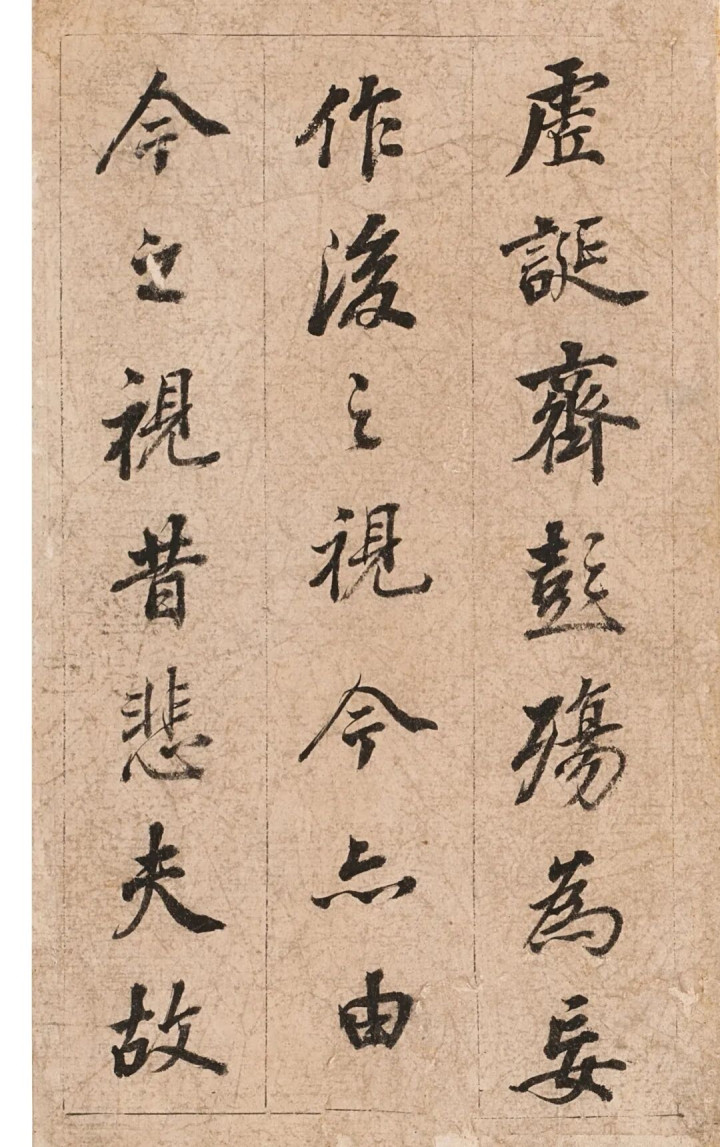 虛誕齊彭殤為妄
作後之視今亦由
今之視昔悲夫故